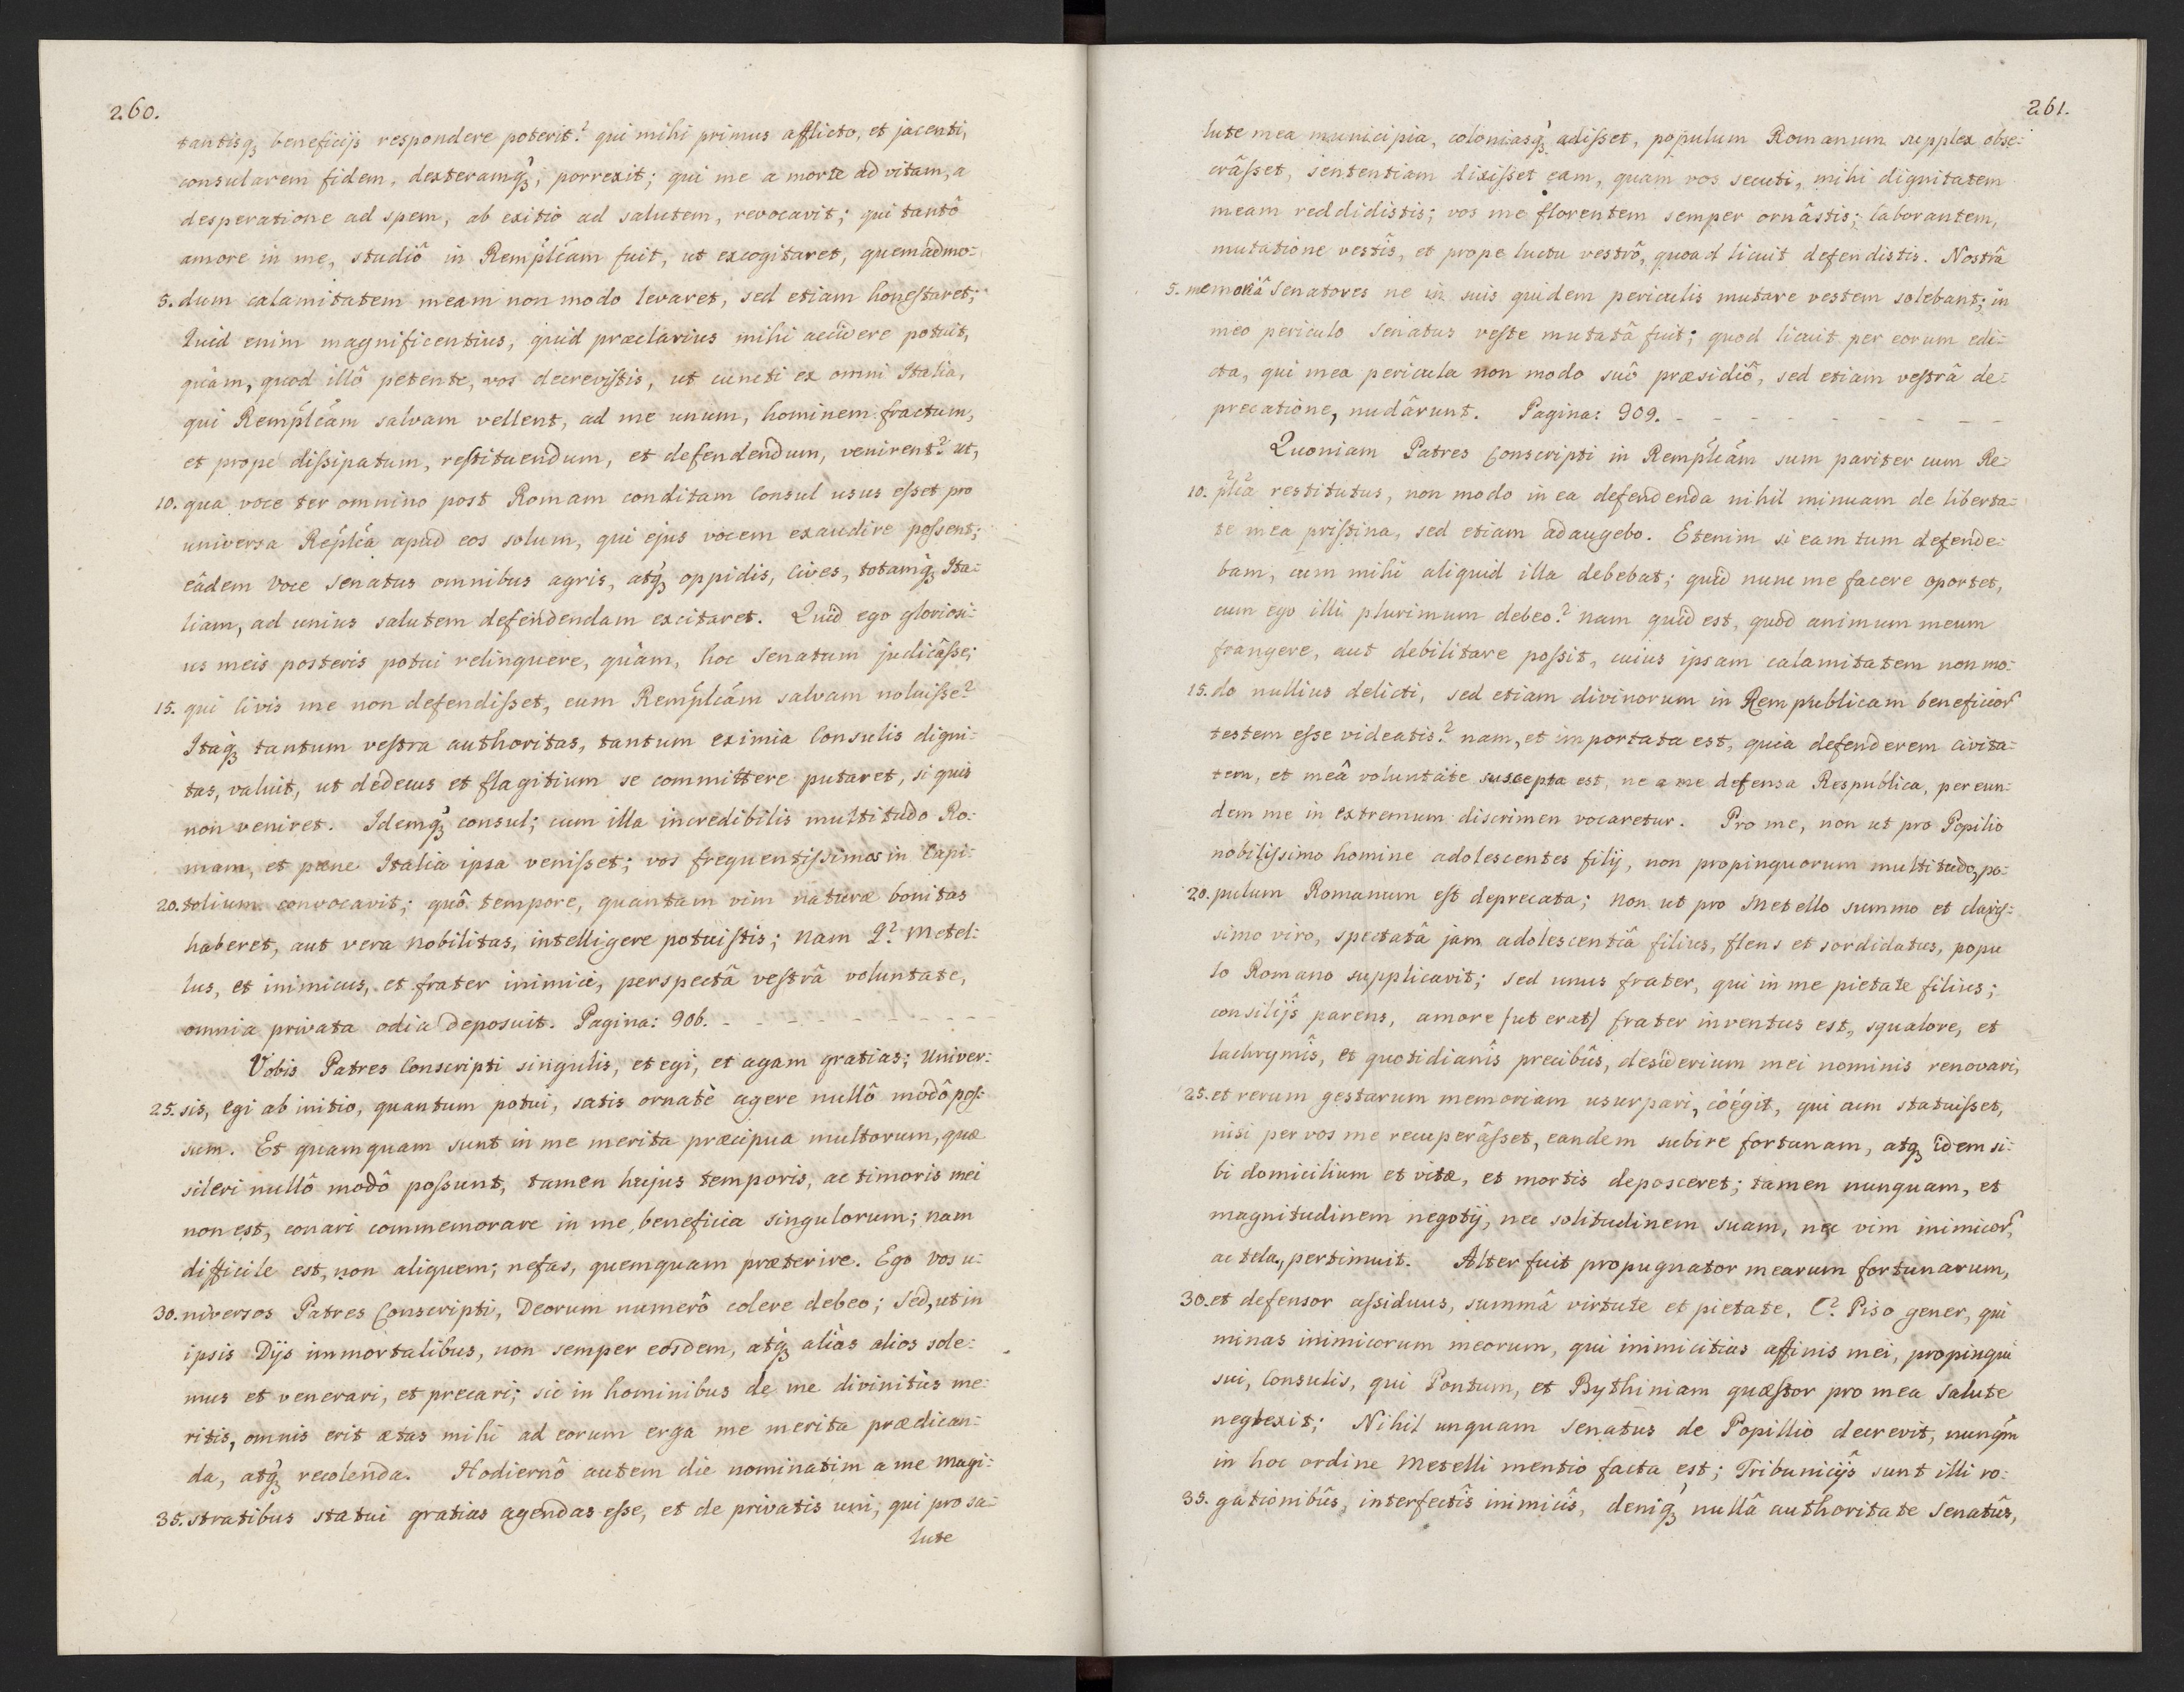 260.
tantisq₃ beneficijs respondere poterit? qui mihi primus afflicto, et jacenti,
consularem fidem, dexteramq́₃, porrexit; qui me a morte ad vitam, a
desperatione ad spem, ab exitio ad salutem, revocavit; qui tantô
amore in me, studiô in Rempl̃cam fuit, ut excogitaret, quemadmo:
5. dum calamitatem meam non modo levaret, sed etiam honestaret;
Quid enim magnificentius, quid præclarius mihi accidere potuit,
quàm, quod illô petente, vos decrevistis, ut cuncti ex omni Italia,
qui Rempl̃cam salvam vellent, ad me unum, hominem fractum,
et prope dissipatum, restituendum, et defendendum, venirent? ut,
10. qua voce ter omnino post Romam conditam Consul usus esset pro
universa Repl̃ca apud eos solum, qui ejus vocem exaudire possent;
eâdem voce Senatus omnibus agris, atq́₃ oppidis, Cives, totamq́₃ Ita:
liam, ad unius salutem defendendam excitaret. Quid ego gloriosi:
us meis posteris potui relinquere, quàm, hoc Senatum judicâsse;
15. qui Civis me non defendisset, eum Rempl̃cam salvam noluisse?
Itaq́₃ tantum vestra authoritas, tantum eximia Consulis digni:
tas, valuit, ut dedecus et flagitium se committere putaret, si quis
non veniret. Idemq́₃ consul; cum illa incredibilis multitudo Ro:
mam, et pæne Italia ipsa venisset; vos frequentissimos in Capi:
20. tolium convocavit; quô tempore, quantam vim naturæ bonitas
haberet, aut vera nobilitas, intelligere potuistis; Nam Q? Metel:
lus, et inimicus, et frater inimici, perspectâ vestrâ voluntate,
omnia privata odia deposuit. Pagina: 906. - - - - - - - - - -
Vobis Patres Conscripti singulis, et egi, et agam gratias; Univer:
25. sis, egi ab initio, quantum potui, satis ornatè agere nullô modô pos:
sum. Et quamquam sunt in me merita præcipua multorum, quæ
sileri nullô modô possunt, tamen hujus temporis, ac timoris mei
non est, conari commemorare in me beneficia singulorum; nam
difficile est, non aliquem; nefas, quemquam præterire. Ego vos u:
30. niversos Patres Conscripti, Deorum numerô colere debeo; Sed, ut in
ipsis Dijs immortalibus, non semper eosdem, atq́₃ aliàs alios sole:
mus et venerari, et precari; sic in hominibus de me divinitùs me:
ritis, omnis erit ætas mihi ad eorum erga me merita prædican:
da, atq́₃ recolenda. Hodiernô autem die nominatim a me Magi:
35. stratibus statui gratias agendas esse, et de privatis uni, qui pro sa:
lute
261.
lute mea municipia, coloniasq́₃ adisset, populum Romanum supplex obse:
crâsset, sententiam dixisset eam, quam vos secuti, mihi dignitatem
meam reddidistis; vos me florentem semper ornâstis; laborantem,
mutatione vestîs, et prope luctu vestrô, quoad licuit defendistis. Nostrâ
5. memoriâ Senatores ne in suis quidem periculis mutare vestem solebant; in
meo periculo Senatus veste mutatâ fuit; quod licuit per eorum edi:
cta, qui mea pericula non modo suô præsidiô, sed etiam vestrâ de:
precatione, nudârunt. Pagina: 909. - - - - - - - - - -
Quoniam Patres Conscripti in Rempl̃cam sum pariter cum Re:
10. pl̃ca restitutus, non modo in ea defendenda nihil minuam de liberta:
te mea pristina, sed etiam adaugebo. Etenim si eam tum defende:
bam, cum mihi aliquid illa debebat; quid nunc me facere oportet,
cum ego illi plurimum debeo? nam quid est, quod animum meum
frangere, aut debilitare possit, cuius ipsam calamitatem non mo:
15. do nullius delicti, sed etiam divinorum in Rempublicam beneficior̃
testem esse videatis? nam, et importata est, quia defenderem civita:
tem, et meâ voluntate suscepta est, ne a me defensa Respublica, per eun:
dem me in extremum discrimen vocaretur. Pro me, non ut pro Popilio
nobilissimo homine adolescentes filij, non propinquorum multitudo, po:
20. pulum Romanum est deprecata; Non ut pro Metello summo et claris:
simo viro, spectatâ jam adolescentiâ filius, flens et sordidatus, popu
lo Romano supplicavit; sed unus frater, qui in me pietate filius;
consilijs parens, amore (ut erat) frater inventus est, squalore, et
lachrymîs, et quotidianîs precibûs, desiderium mei nominis renovari,
25. et rerum gestarum memoriam usurpari, cöégit, qui cum statuisset,
nisi per vos me recuperâsset, eandem subire fortunam, atq₃ idem si:
bi domicilium et vitæ, et mortis deposceret; tamen nunquam, et
magnitudinem negotij, nec solitudinem suam, nec vim inimicor̃,
ac tela, pertimuit. Alter fuit propugnator mearum fortunarum,
30. et defensor assiduus, summâ virtute et pietate, C? Piso gener, qui
minas inimicorum meorum, qui inimicitias affinis mei, propinqui
sui, Consulis, qui Pontum, et Bythiniam quæstor pro mea salute
neglexit; Nihil unquam Senatus de Popillio decrevit, nunqm̃
in hoc ordine Metelli mentio facta est; Tribunicijs sunt illi ro:
35. gationibûs, interfectîs inimicîs, deniq́₃ nullâ authoritate Senatûs,